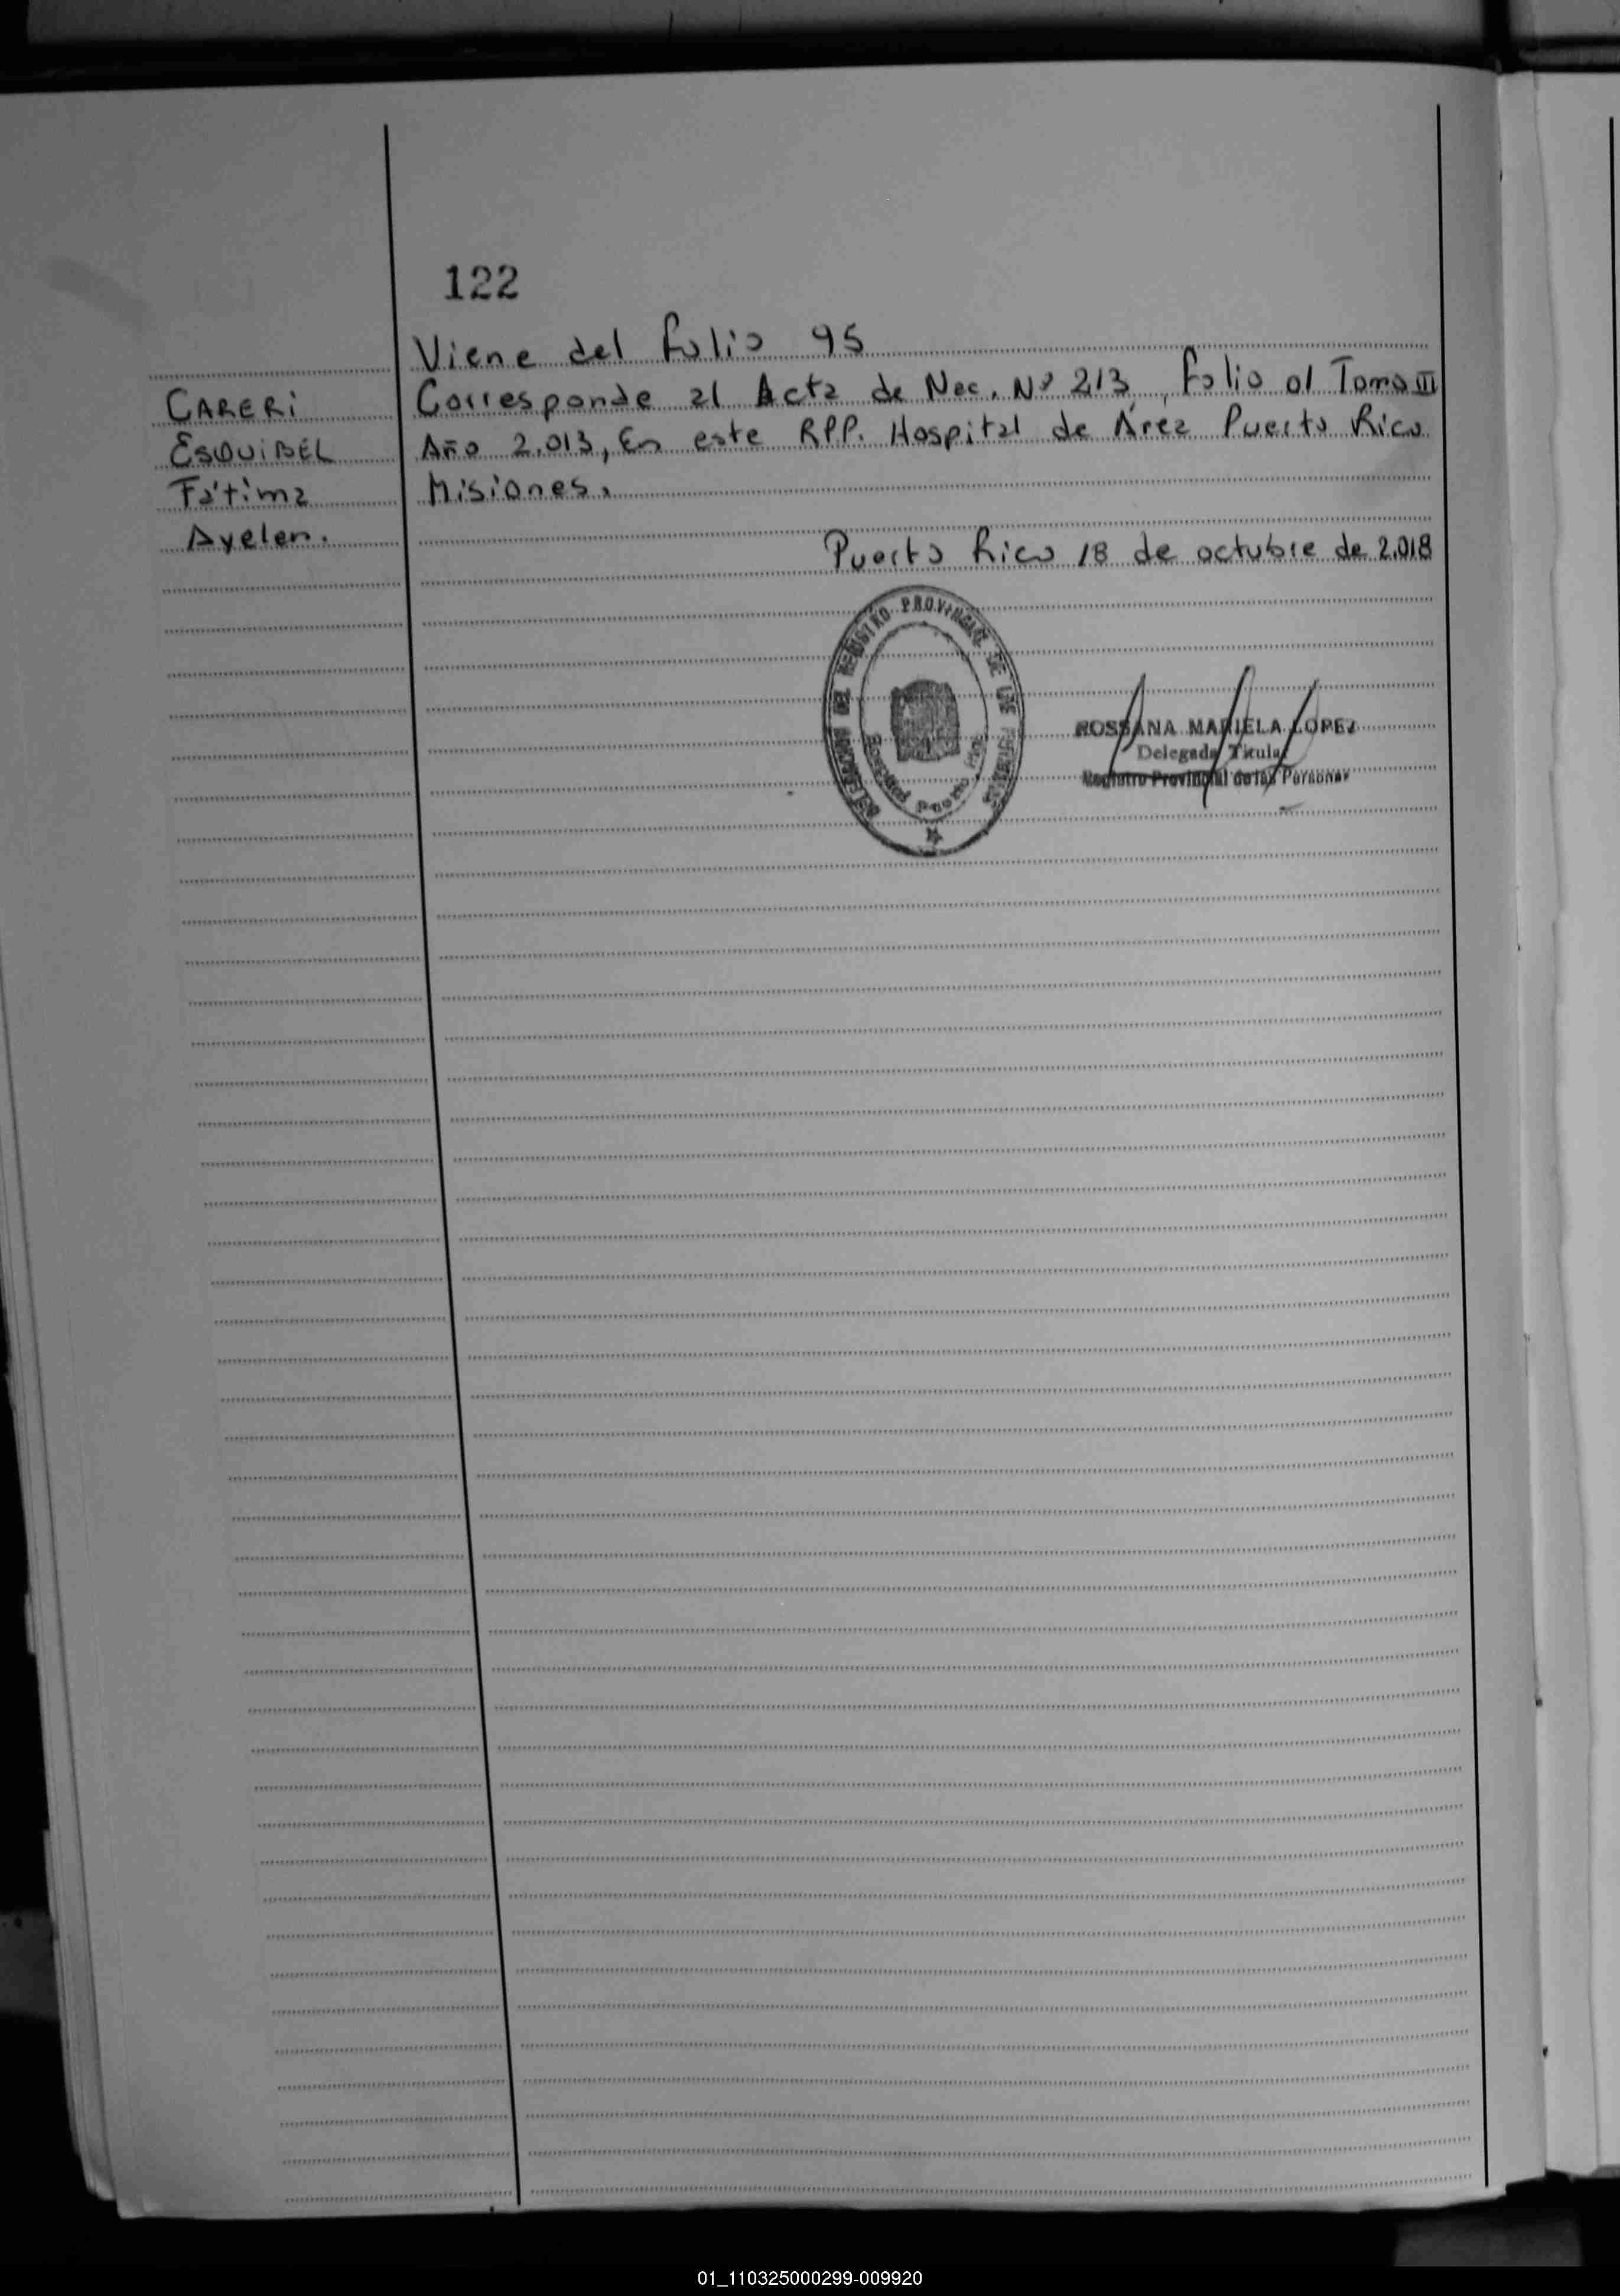 122
Viene del folio 95
CARERI
Corresponde al Acta de Nac. Nº 213, Folio 01 Tomo III
ESQUIBEL
Año 2.013, En este RPP. Hospital de Área Puerto Rico
Fátima
Misiones.
Ayelen.
Puerto Rico 18 de octubre de 2.018
DELEGACION DEL REGISTRO PROVINCIAL DE LAS PERSONAS
Hospital Puerto Rico
ROSSANA MARIELA LOPEZ
Delegada Titular
Registro Provincial de las Personas
01_110325000299-009920